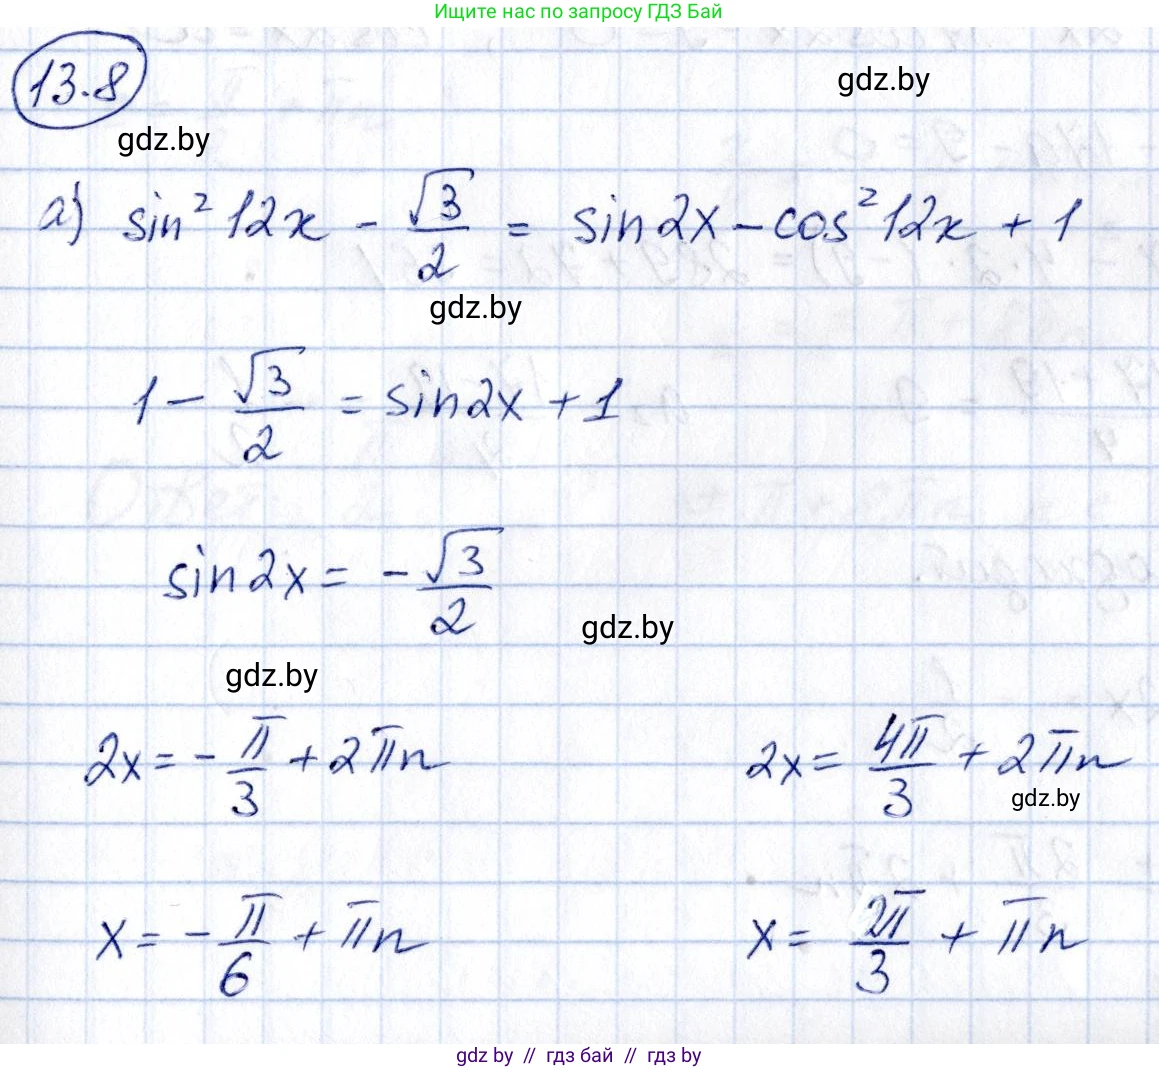 Ищите нас по запросу ГДЗ Бай
13.8
gdz.by
gdz.by
а) sin² 12x - √3/2 = sin2x - cos² 12x + 1
gdz.by
1 - √3/2 = sin2x + 1
sin2x = - √3/2
gdz.by
gdz.by
2x = - π/3 + 2πn
2x = 4π/3 + 2πn
gdz.by
x = - π/6 + πn
x = 2π/3 + πn
gdz by // гдз бай // гдз by